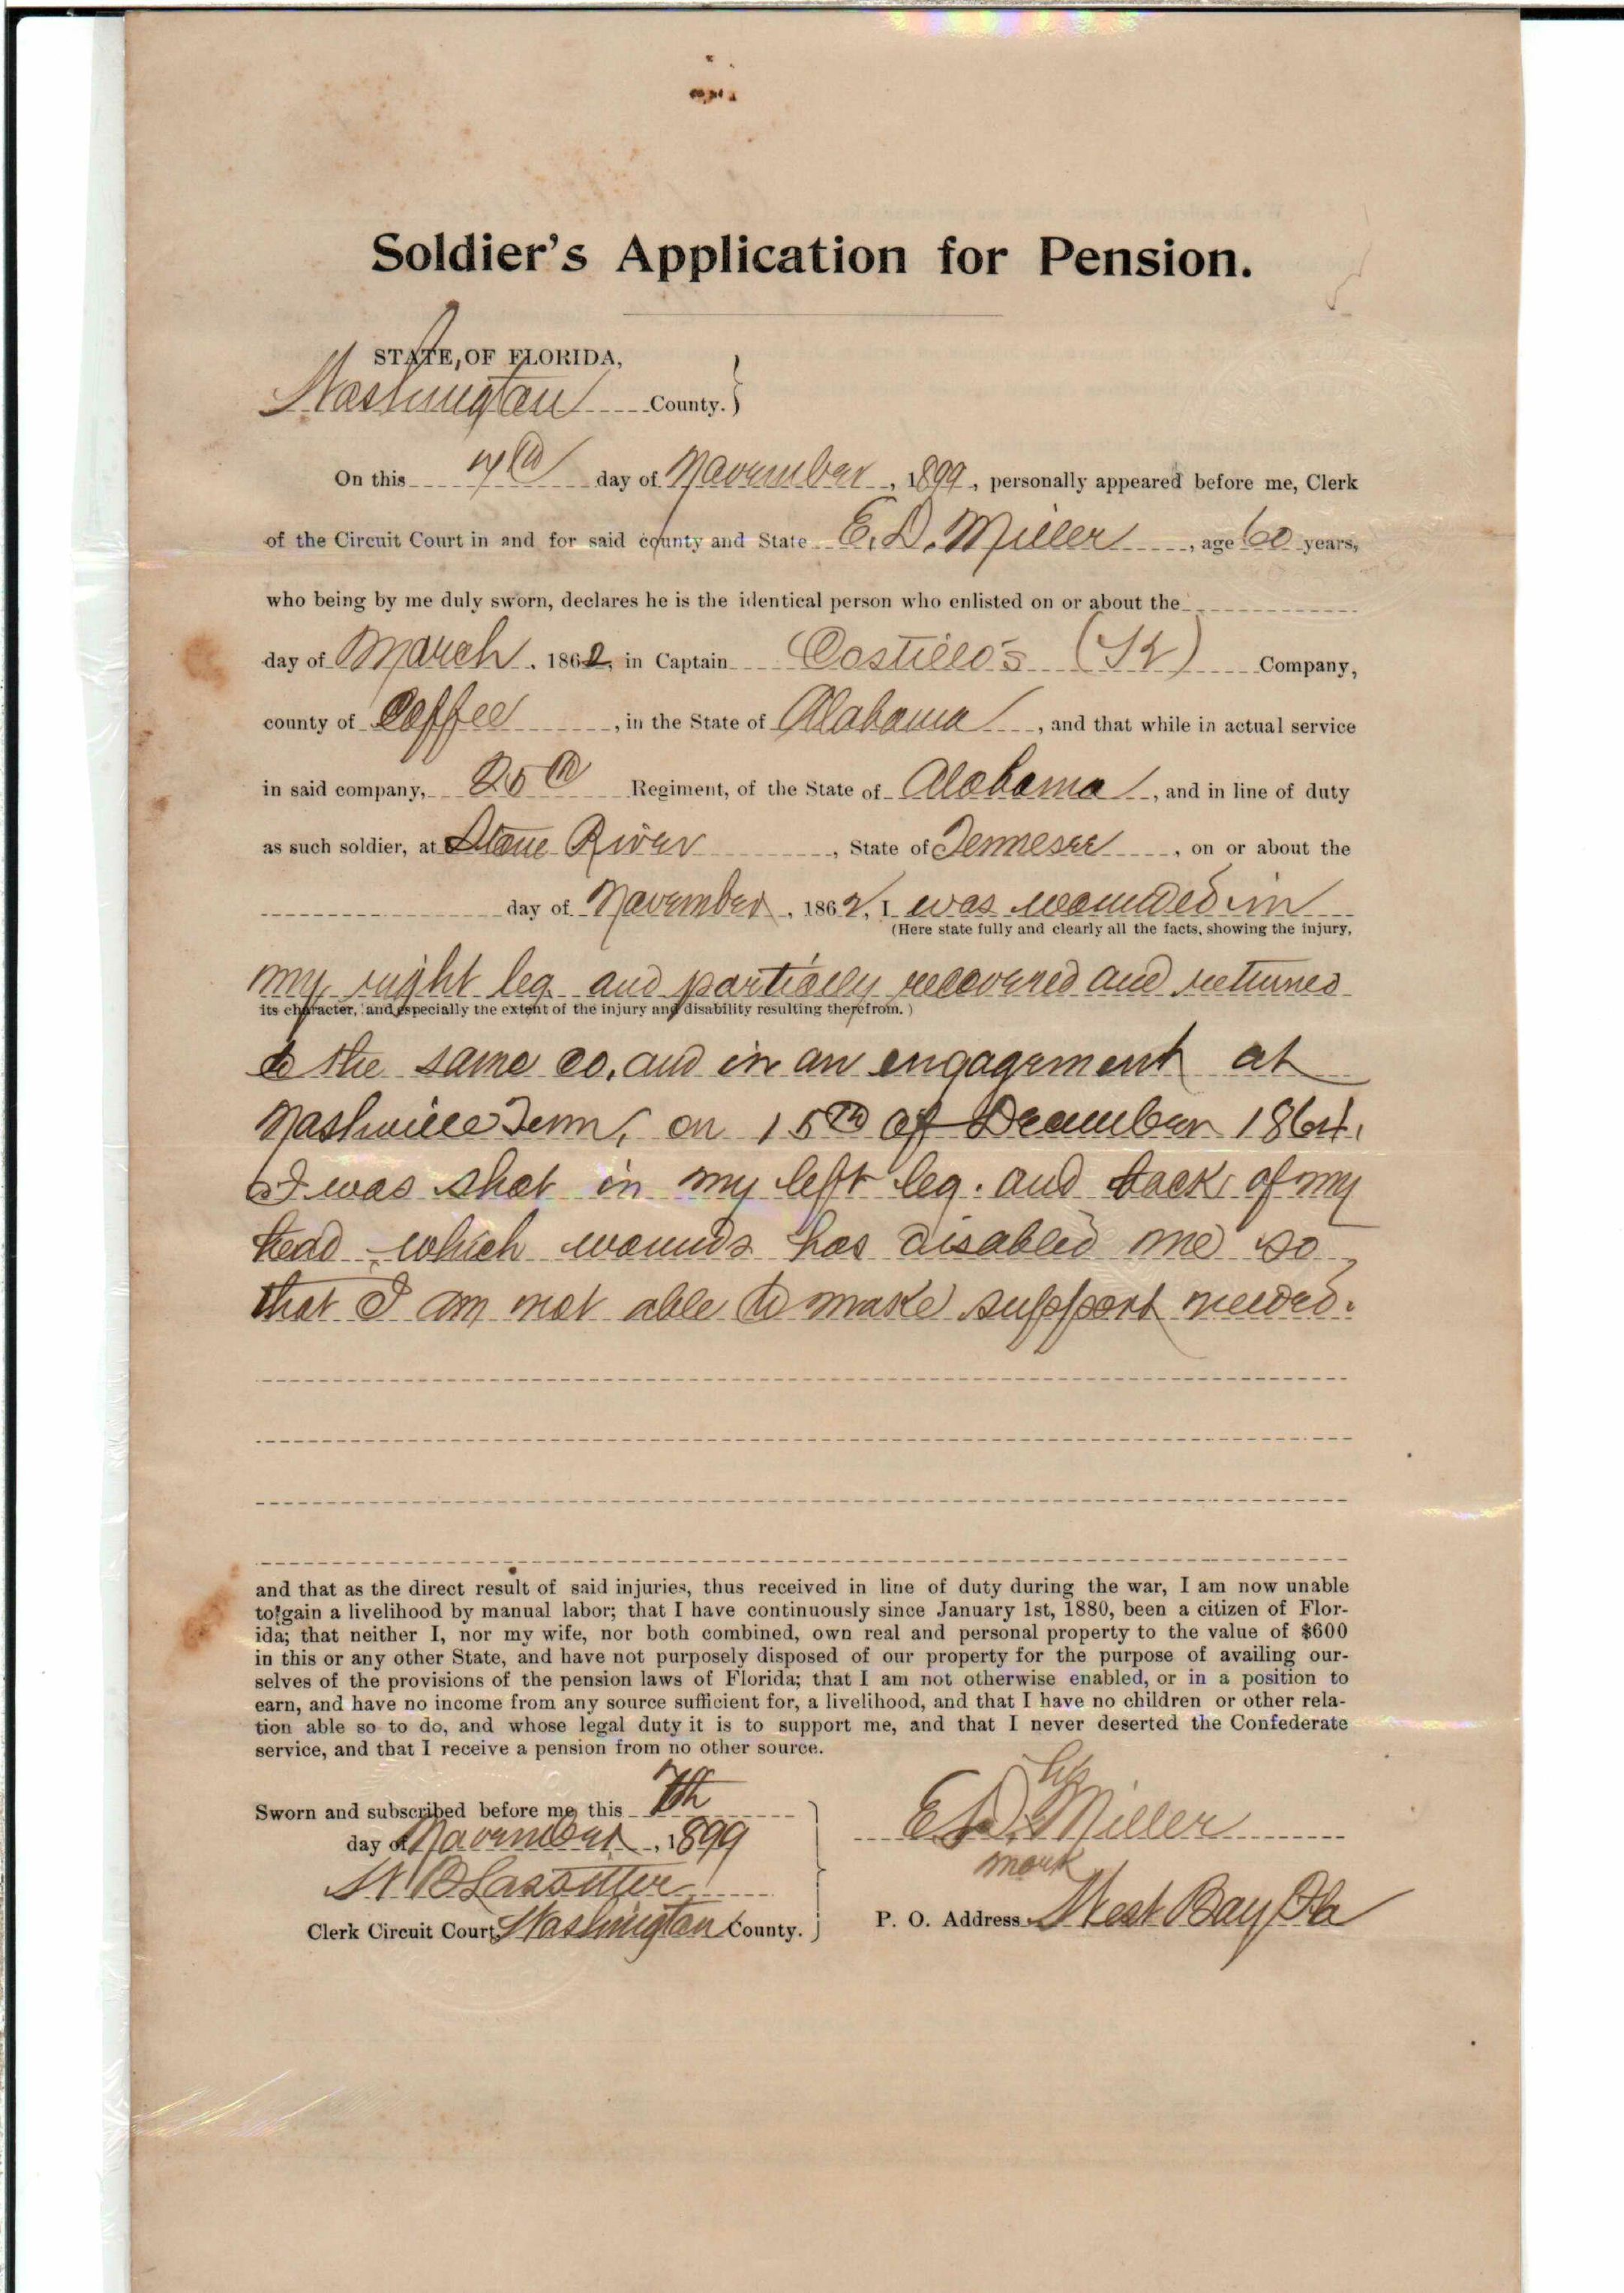 Soldier's Application for Pension.
STATE OF FLORIDA,
Washington County.
On this 7th day of November, 1899, personally appeared before me, Clerk
of the Circuit Court in and for said county and State E. D. Miller, age 60 years,
who being by me duly sworn, declares he is the identical person who enlisted on or about the
day of March, 1862, in Captain Costillo's (K) Company,
county of Coffee, in the State of Alabama, and that while in actual service
in said company, 25th Regiment, of the State of Alabama, and in line of duty
as such soldier, at Stone River, State of Tennesee, on or about the
day of November, 1862, I was wounded in
(Here state fully and clearly all the facts, showing the injury,
my right leg and partially recovered and returned
its character, and especially the extent of the injury and disability resulting therefrom.)
to the same co. and in an engagement at
Nashville Tenn, on 15th of December 1864,
I was shot in my left leg. and back of my
head which wounds has disabled me so
that I am not able to make support needed.
and that as the direct result of said injuries, thus received in line of duty during the war, I am now unable
to gain a livelihood by manual labor; that I have continuously since January 1st, 1880, been a citizen of Flor-
ida; that neither I, nor my wife, nor both combined, own real and personal property to the value of $600
in this or any other State, and have not purposely disposed of our property for the purpose of availing our-
selves of the provisions of the pension laws of Florida; that I am not otherwise enabled, or in a position to
earn, and have no income from any source sufficient for, a livelihood, and that I have no children or other rela-
tion able so to do, and whose legal duty it is to support me, and that I never deserted the Confederate
service, and that I receive a pension from no other source.
Sworn and subscribed before me this 7th
day of November, 1899
W B Lassitter
Clerk Circuit Court, Washington County.
his
E D. x Miller
mark
P. O. Address West Bay Fla